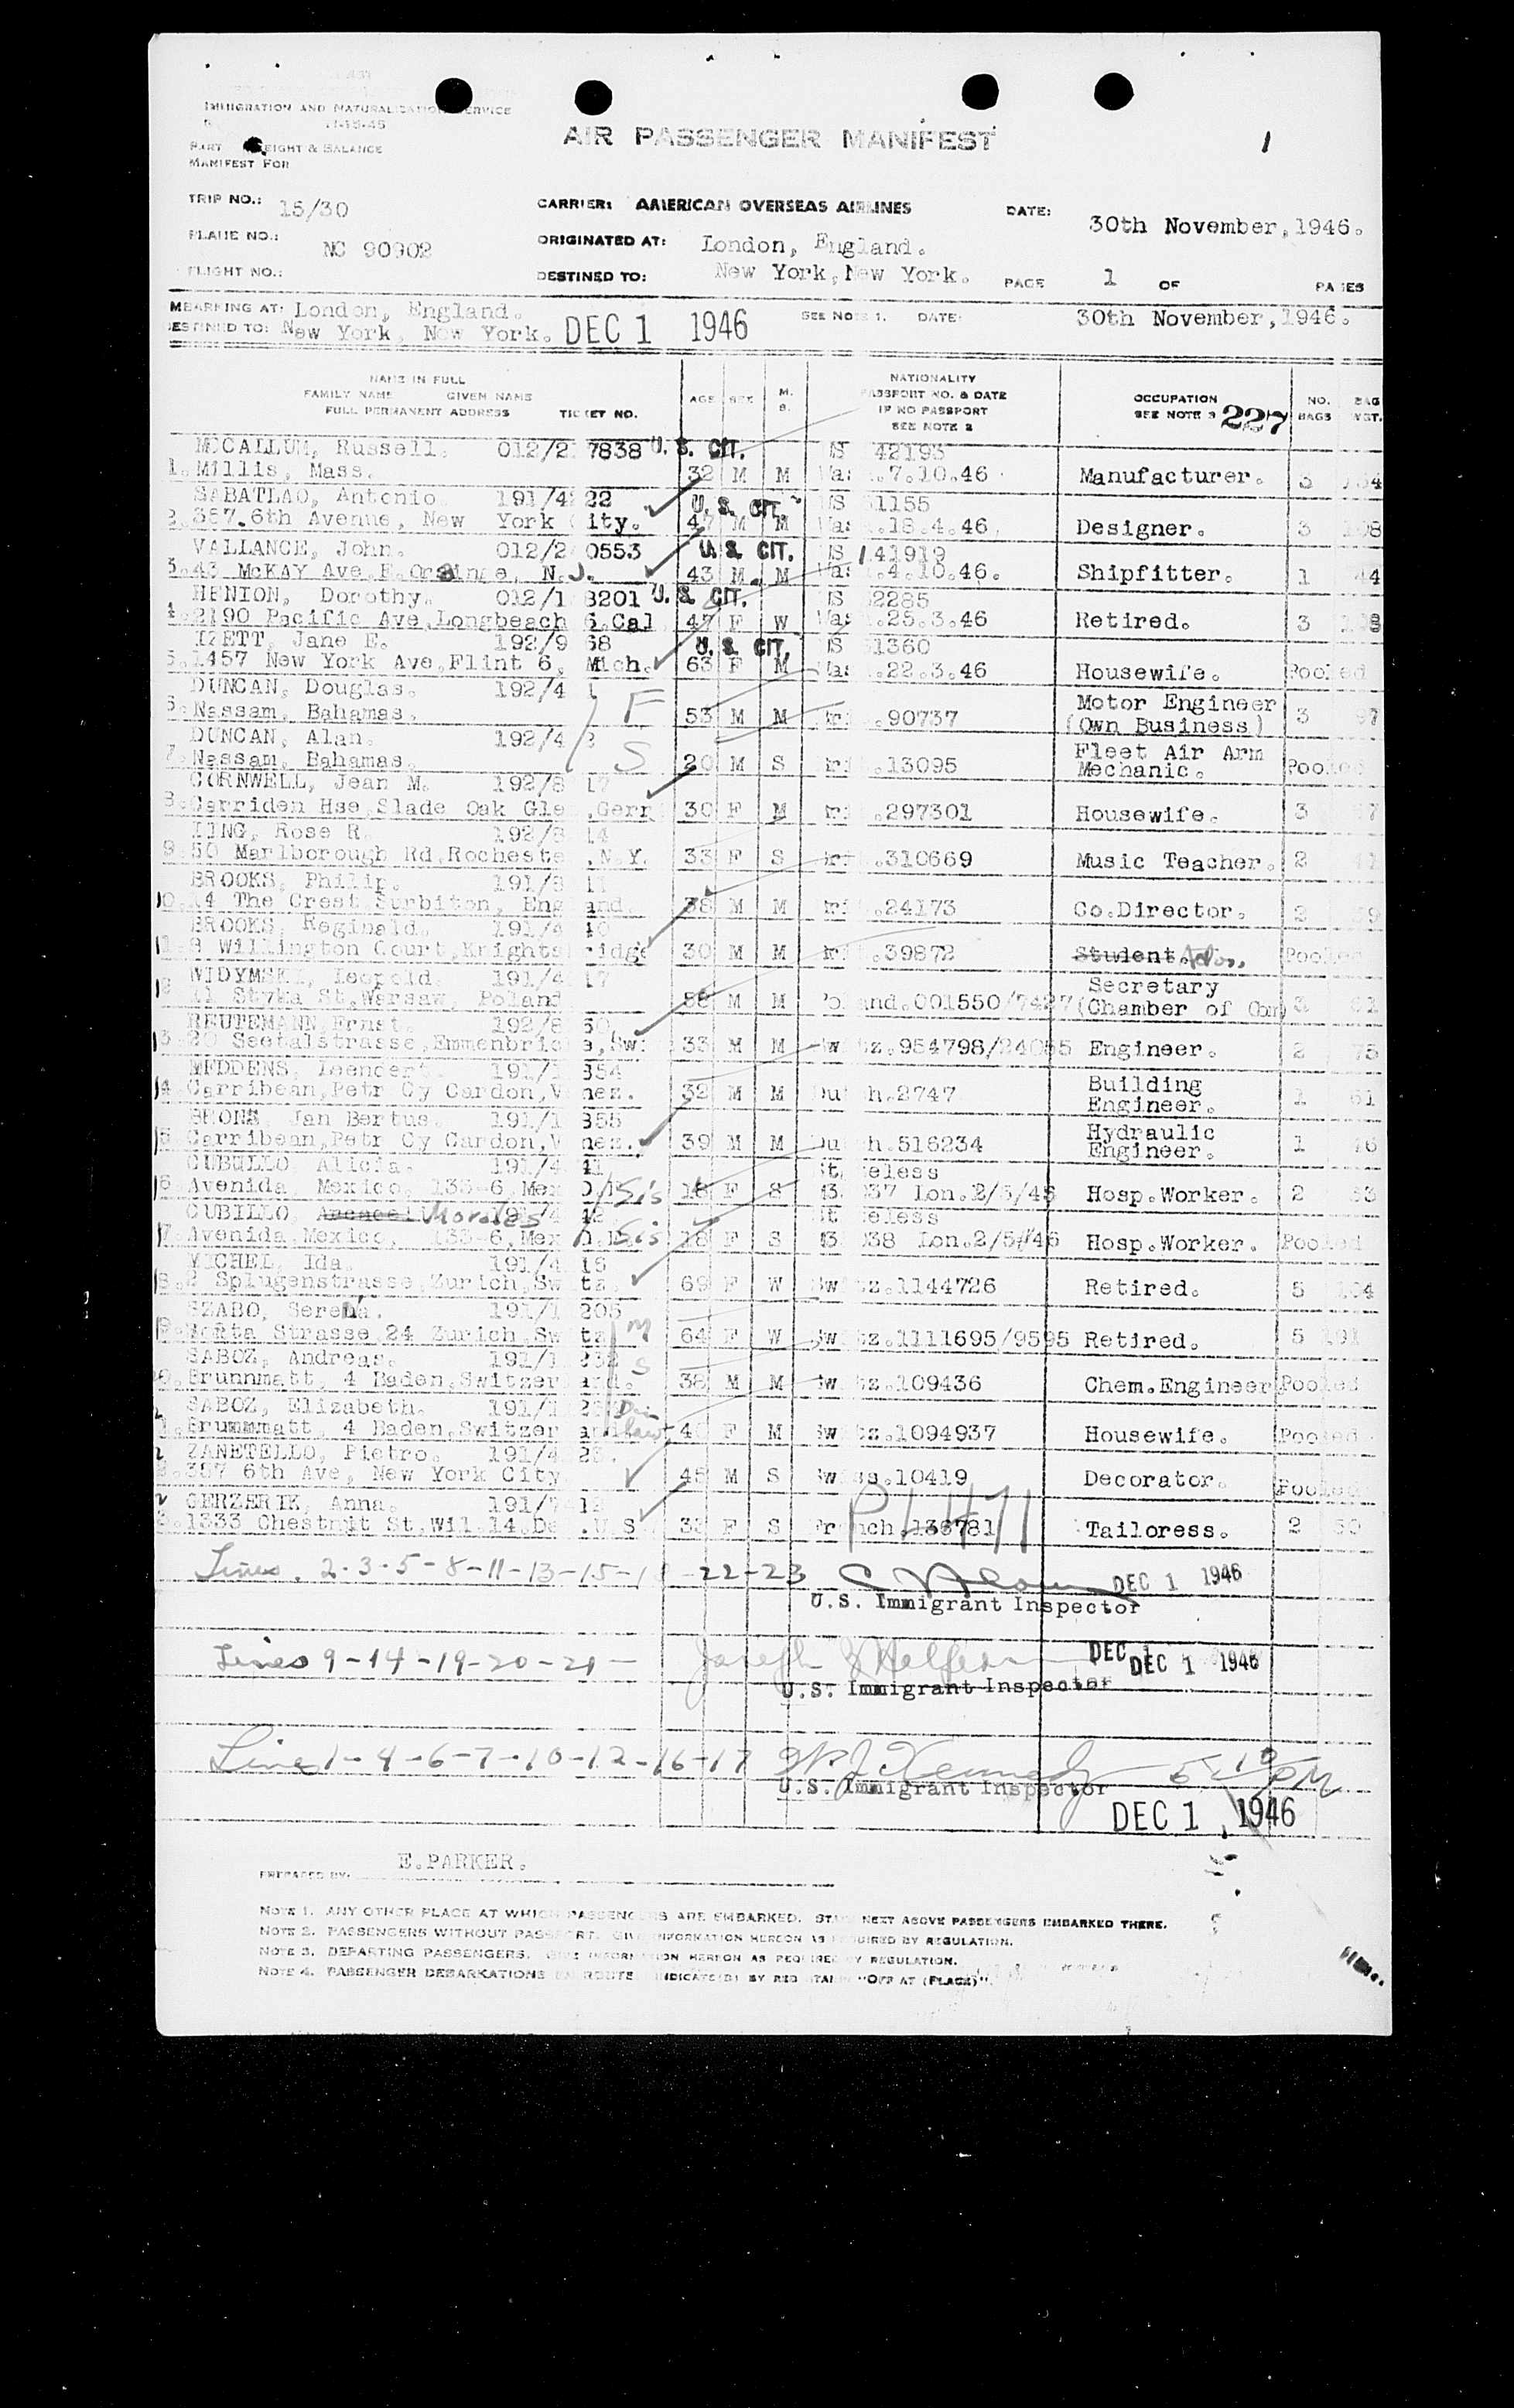 IMMIGRATION AND NATURALIZATION SERVICE
11-15-45
PART WEIGHT & BALANCE
MANIFEST FOR
AIR PASSENGER MANIFEST
1
TRIP NO.: 15/30
CARRIER: AMERICAN OVERSEAS AIRLINES
DATE: 30th November, 1946.
PLANE NO.: NC 90902
ORIGINATED AT: London, England.
FLIGHT NO.:
DESTINED TO: New York, New York.
PAGE 1 OF PAGES
MBARKING AT: London, England.
SEE NOTE 1. DATE: 30th November, 1946.
ESTINED TO: New York, New York. DEC 1 1946
NAME IN FULL
FAMILY NAME GIVEN NAME
FULL PERMANENT ADDRESS TICKET NO.
AGE SEX M. S.
NATIONALITY
PASSPORT NO. & DATE
IF NO PASSPORT
SEE NOTE 2
OCCUPATION
SEE NOTE 3 227
NO. BAGS BAG WGT.
MCCALLUM, Russell. 012/2 7838 U. S. CIT. US 42193
1. Millis, Mass. 32 M M Was .7.10.46 Manufacturer. 3
SABATLAO, Antonio 191/4 22 U. S. CIT. US 1155
2. 387.6th Avenue, New York City. 47 M M Was .18.4.46 Designer. 3
VALLANCE, John. 012/2 0553 U. S. CIT. US 41919
3. 43 McKAY Ave.E.Orainge, N.J. 43 M M Was .4.10.46. Shipfitter. 1 44
HENION, Dorothy. 012/1 8201 U. S. CIT. US 2285
4. 2190 Pacific Ave,Longbeach 6.Cal 47 F W Was .25.3.46 Retired. 3
IZETT, Jane E. 192/9 68 U. S. CIT. US 1360
5. 1457 New York Ave,Flint 6, Mich. 63 F M Was .22.3.46 Housewife. Pooled
DUNCAN, Douglas. 192/4 F
6. Nassam, Bahamas. 53 M M .90737 Motor Engineer (Own Business) 3 97
DUNCAN, Alan. 192/4 S
7. Nassam, Bahamas. 20 M S .13095 Fleet Air Arm Mechanic. Pooled
CORNWELL, Jean M. 192/8 17
8. Gerriden Hse,Slade Oak Gle ,Gerr 30 F M .297301 Housewife. 3
Rose R. 192/8 14
9. 50 Marlborough Rd,Rocheste .N.Y. 33 F S .310669 Music Teacher. 2 41
BROOKS, Philip. 191/8 11
10. 14 The Crest,Surbiton, Eng and. 38 M M .24173 Co.Director. 2
BROOKS, Reginald. 191/4 40
11. 9 Willington Court,Knights ridge 30 M M .39872 Student. Pooled
WIDYMSKI, Leopold. 191/4 17
12 St,Warsaw, Poland 58 M M Poland.001550/7427 Secretary (Chamber of Com) 3 61
REUTEMANN,Ernst. 192/8 60
13. 20 Seetalstrasse,Emmenbric e,Swi 33 M M Switz.954798/24055 Engineer. 2 75
MEDDENS, Leendert. 191/1 354
14. Carribean,Petr Cy Cardon,V nez. 32 M M Dutch.2747 Building Engineer. 1 61
BRONS, Jan Bertus. 191/1 355
15. Carribean,Petr Cy Cardon,V nez. 39 M M Dutch.516234 Hydraulic Engineer. 1
CUBILLO, Alicia. 191/4 41 Stateless
16. Avenida, Mexico, 133-6,Mex Sis 18 F S 37 Lon.2/5/46 Hosp.Worker. 2
CUBILLO, Morales 191/4 42 Stateless
17. Avenida,Mexico, 133-6,Mex Sis 18 F S 38 Lon.2/5/46 Hosp.Worker. Pooled
MICHEL, Ida. 191/4 16
18. 2 Splugenstrasse,Zurich,Sw tz 69 F W Switz.1144726 Retired. 5 104
SZABO, Serena. 191/1 205 M
19. Strasse 24 Zurich,Sw tz 64 F W Switz.1111695/9595 Retired. 5 101
SABOZ, Andreas. 191/1 232 S
20. Brunnmatt, 4 Baden,Switzerland. 38 M M Switz.109436 Chem.Engineer Pooled
SABOZ, Elizabeth. 191/1 Da. in law
21. Brummmatt, 4 Baden,Switzer 40 F M Switz.1094937 Housewife. Pooled.
ZANETELLO, Pietro. 191/4 28.
22. 387 6th Ave, New York City 45 M S Swiss.10419 Decorator. Pooled
GERZERIK, Anna. 191/7 12 P1471
23. 1333 Chestnut St.Wil.14.De .U S 33 F S French.136781 Tailoress. 2 50
Lines. 2-3-5-8-11-13-15-18-22-23 DEC 1 1946
U.S. Immigrant Inspector
Lines 9-14-19-20-21- Joseph DEC 1 DEC 1 1946
U.S. Immigrant Inspector
Lines 1-4-6-7-10-12-16-17 W J Kennedy PM
U.S. Immigrant Inspector
DEC 1 1946
PREPARED BY: E.PARKER.
NOTE 1. ANY OTHER PLACE AT WHICH PASSENGERS ARE EMBARKED. STATE NEXT ABOVE PASSENGERS EMBARKED THERE.
NOTE 2. PASSENGERS WITHOUT PASSPORT. GIVE INFORMATION HEREON AS REQUIRED BY REGULATION.
NOTE 3. DEPARTING PASSENGERS. GIVE INFORMATION HEREON AS REQUIRED BY REGULATION.
NOTE 4. PASSENGER DEBARKATIONS EN ROUTE INDICATE(D) BY RED STAMP "OFF AT (PLACE)".